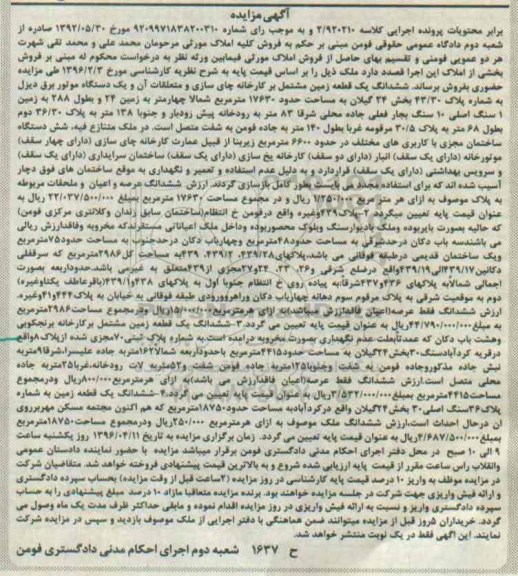 آگهی مزایده
برابر محتویات پرونده اجرایی کلاسه ۲/۹۲۰۲۱۰ و به موجب رای شماره ۹۲۰۹۹۷۱۸۳۸۲۰۰۳۱۰ مورخ ۱۳۹۲/۰۵/۳۰ صادره از
شعبه دوم دادگاه عمومی حقوقی فومن مبنی بر حکم به فروش کلیه املاک مورثی مرحومان محمد علی و محمد تقی شهرت
هر دو عمویی فومنی و تقسیم بهای حاصل از فروش املاک مورثی فیمابین ورثه نظر به درخواست محکوم له مبنی بر فروش
بخشی از املاک این اجرا قصد دارد ملک ذیل را بر اساس قیمت پایه به شرح نظریه کارشناسی مورخ ۱۳۹۶/۳/۳ طی مزایده
حضوری بفروش برساند. ششدانگ یک قطعه زمین مشتمل بر کارخانه چای سازی و متعلقات آن و یک دستگاه موتور برق دیزل
به شماره پلاک ۴۳/۳۰ بخش ۲۴ گیلان به مساحت حدود ۱۷۶۳۰ مترمربع شمالا چهارمتر به زمین ۲۴ و بطول ۲۸۸ به زمین
۱ سنگ اصلی ۱۰ سنگ بجار فعلی جاده محلی شرقا ۸۳ متر به رودخانه پیش رودبار و جنوبا ۱۳۸ متر به پلاک ۳۶/۳۰ دوم
بطول ۶۸ متر به پلاک ۳۰/۵ مرقومه غربا بطول ۱۴۰ متر به جاده فومن به شفت متصل است. در ملک متنازع فیه، شش دستگاه
ساختمان مجزی با کاربری های مختلف در حدود ۶۶۰۰ مترمربع زیربنا از قبیل عمارت کارخانه چای سازی (دارای چهار سقف)
موتورخانه (دارای یک سقف) انبار (دارای دو سقف) کارخانه یخ سازی (دارای یک سقف) ساختمان سرایداری (دارای یک سقف)
و سرویس بهداشتی (دارای یک سقف) قرار دارد و به دلیل عدم استفاده و تعمیر و نگهداری به موقع ساختمان های فوق دچار
آسیب شده اند که برای استفاده مجدد می بایست بطور کامل بازسازی گردند. ارزش ششدانگ عرصه و اعیان و ملحقات مربوطه
به پلاک موصوف به ازای هر متر مربع ۱/۲۵۰/۰۰۰ ریال و در مجموع مساحت ۱۷۶۳۰ مترمربع بمبلغ ۲۲/۰۳۷/۵۰۰/۰۰۰ ریال به
عنوان قیمت پایه تعیین میگردد ۲-پلاک۴۳۹وغیره واقع درفومن خ انتظام(ساختمان سابق زندان وکلانتری مرکزی فومن)
که حالیه بصورت بایربوده وملک بادیوارسنگ وبلوک محصوربوده وداخل ملک اعیاناتی مستقرندکه مخروبه وفاقدارزش ریالی
می باشندسه باب دکان درحدشرقی به مساحت حدود۴۸مترمربع وچهارباب دکان درحدجنوب به مساحت حدود۷۵مترمربع
ویک ساختمان قدیمی درطبقه فوقانی می باشد.پلاکهای۴۳۹/۲۸، ۴۳۹/۱، ۴۳۹به مساحت کل۲۹۸۶مترمربع که سرقفلی
دکانین۴۳۹/۱۷الی۴۳۹/۱۹واقع درضلع شرقی و۲۶، ۲۳، ۲۴و۲۷مجزی از۴۳۹متعلق به غیرمی باشد.حدوداربعه بصورت
اجمالی شمالابه پلاکهای ۴۳۶و۴۳۷شرقابه پیاده روی خ انتظام جنوبا اول به پلاکهای ۴۳۸و۴۳۹/۱(باقرعاطف یکتاوغیره)
دوم به موقعیت شرقی به پلاک مرقوم سوم دهانه چهارباب دکان وراهروورودی طبقه فوقانی به خیابان به پلاک۴۴۴و۴۱وغیره.
ارزش ششدانگ فقط عرصه(اعیان فاقدارزش میباشد)به ازای هرمترمربع۱۵/۰۰۰/۰۰۰ریال ودرمجموع مساحت۲۹۸۶مترمربع
به مبلغ۴۴/۷۹۰/۰۰۰/۰۰۰ریال به عنوان قیمت پایه تعیین می گردد.۳-ششدانگ یک قطعه زمین مشتمل برکارخانه برنجکوبی
وهشت باب دکان که عمدتابعلت عدم نگهداری بصورت مخروبه درآمده است به شماره پلاک ثبتی۷۰مجزی شده ازپلاک۸واقع
درقریه کردآبادسنگ۳۰بخش۲۴گیلان به مساحت حدود۴۴۱۵مترمربع باحدوداربعه شمالا۱۶۲متربه جاده علیسرا،شرقا۹متربه
نبش جاده مذکوروجاده فومن به شفت وجنوبا۱۲۵متربه جاده فومن شفت و۵۲متربه لات رودخانه،غربا۳۵متربه جاده
محلی متصل است.ارزش ششدانگ فقط عرصه(اعیان فاقدارزش می باشد)به ازای هرمترمربع۸۰۰/۰۰۰ریال ودرمجموع
مساحت۴۴۱۵مترمربع بمبلغ۳/۵۳۲/۰۰۰/۰۰۰ریال به عنوان قیمت پایه تعیین می گردد.۴-ششدانگ یک قطعه زمین به شماره
پلاک۳۶سنگ اصلی۳۰بخش۲۴گیلان واقع درکردآبادبه مساحت حدود۱۸۷۵۰مترمربع که هم اکنون مجتمع مسکن مهربرروی
ان درحال احداث است.ارزش ششدانگ ملک موصوف به ازای هرمترمربع ۲۵۰/۰۰۰ریال ودرمجموع مساحت۱۸۷۵۰مترمربع
بمبلغ۴/۶۸۷/۵۰۰/۰۰۰ریال به عنوان قیمت پایه تعیین می گردد. زمان برگزاری مزایده به تاریخ ۱۳۹۶/۰۴/۱۱ روز یکشنبه ساعت
۹ الی ۱۰ صبح در محل دفتر اجرای احکام مدنی دادگستری فومن برقرار میباشد مزایده با حضور نماینده دادستان عمومی
وانقلاب راس ساعت مقرر از قیمت پایه ارزیابی شده شروع و به بالاترین قیمت پیشنهادی فروخته خواهد شد. متقاضیان شرکت
در مزایده موظف به واریز ۱۰ درصد قیمت پایه کارشناسی در روز مزایده (۲ساعت قبل از وقت مزایده) بحساب سپرده دادگستری
و ارائه فیش واریزی جهت شرکت در جلسه مزایده خواهند بود. برنده مزایده متعاقبا مازاد ۱۰ درصد مبلغ پیشنهادی را به حساب
سپرده دادگستری واریز و نسبت به ارائه فیش واریزی در روز مزایده اقدام نموده و مابقی حداکثر ظرف مدت یک ماه وصول می
گردد. خریداران ۵روز قبل از مزایده میتوانند ضمن هماهنگی با دفتر اجرایی از ملک موصوف بازدید و سپس در مزایده شرکت
نمایند. این آگهی فقط در یک نوبت منتشر خواهد شد.
ح ۱۶۳۷ شعبه دوم اجرای احکام مدنی دادگستری فومن